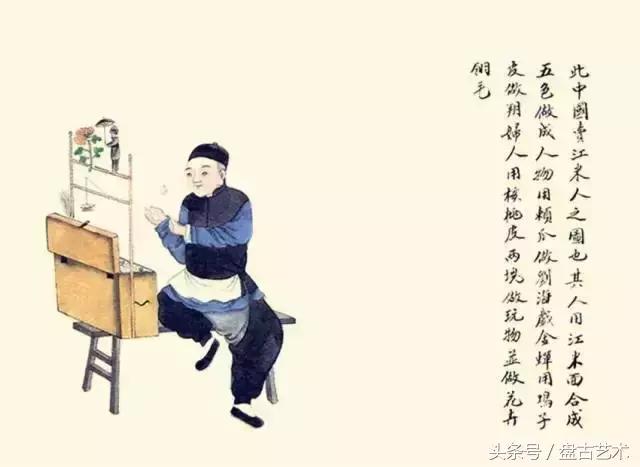 此中國賣江米人之圖也其人用江米面合成
五色做成人物用賴瓜做劉海戲金蟬用鳴子
皮做翔婦人用核桃皮兩塊做玩物並做花卉
翎毛
头条号/盘古艺术